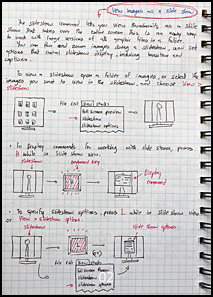 View images as a slide show
The slideshow command lets you view thumbnails as a slide
show that takes over the entire screen. This is an easy way
to work with large versions of all graphic files in a folder.
You can pan and zoom images during a slideshow, and set
options that control slideshow display, including transition and
captions.
To view a slideshow open a folder of images, or select the
images you want to view in the slideshow, and choose View >
slideshow
file edit View
full screen preview
slideshow
slideshow options
• To display commands for working with slide shows, press
H while in slide show view.
slideshow
Display
command
• To specify slideshow options, press L while in slide show view
or View > slideshow options
slideshow
slide show options
file edit View
full screen
slideshow
slideshow options